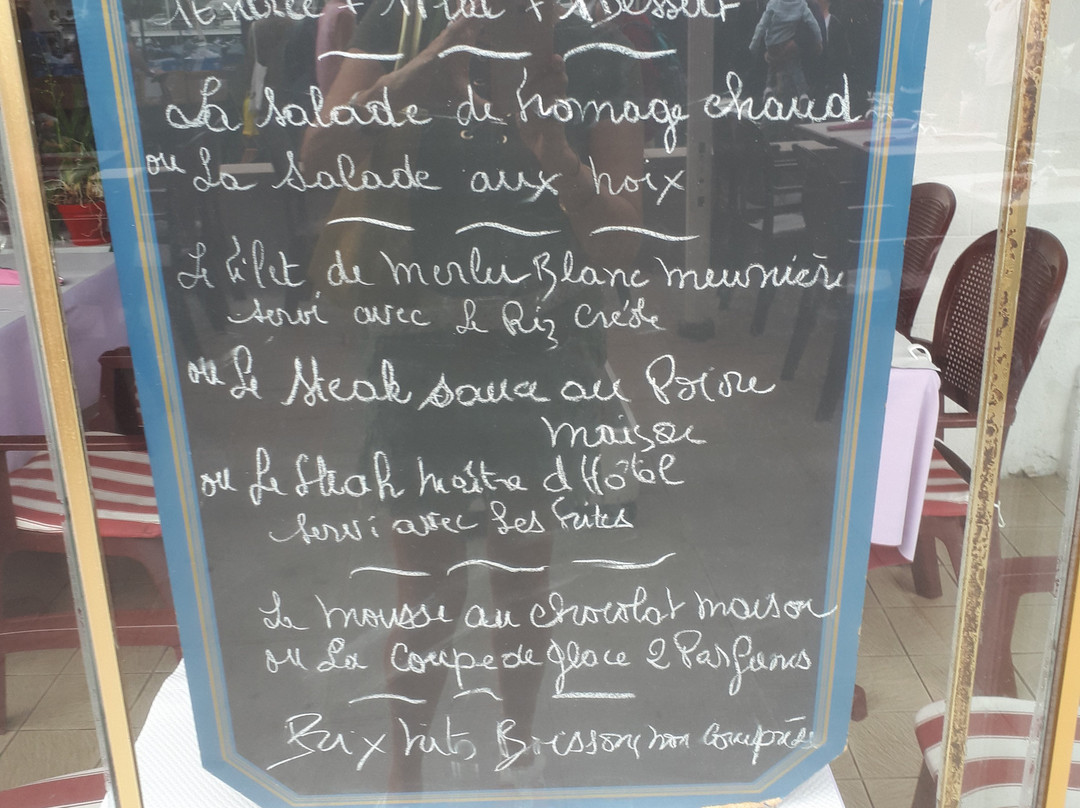 1 Entrée + 1 Plat + 1 Dessert
La Salade de fromage chaud
ou La Salade aux noix
Le Filet de Merlu Blanc meunière
servi avec Le Riz Créole
ou Le Steak sauce au Poivre
maison
ou Le Steak maître d'Hôtel
servi avec Les Frites
La mousse au chocolat maison
ou La Coupe de glace 2 Parfums
Prix nets Boisson non comprise